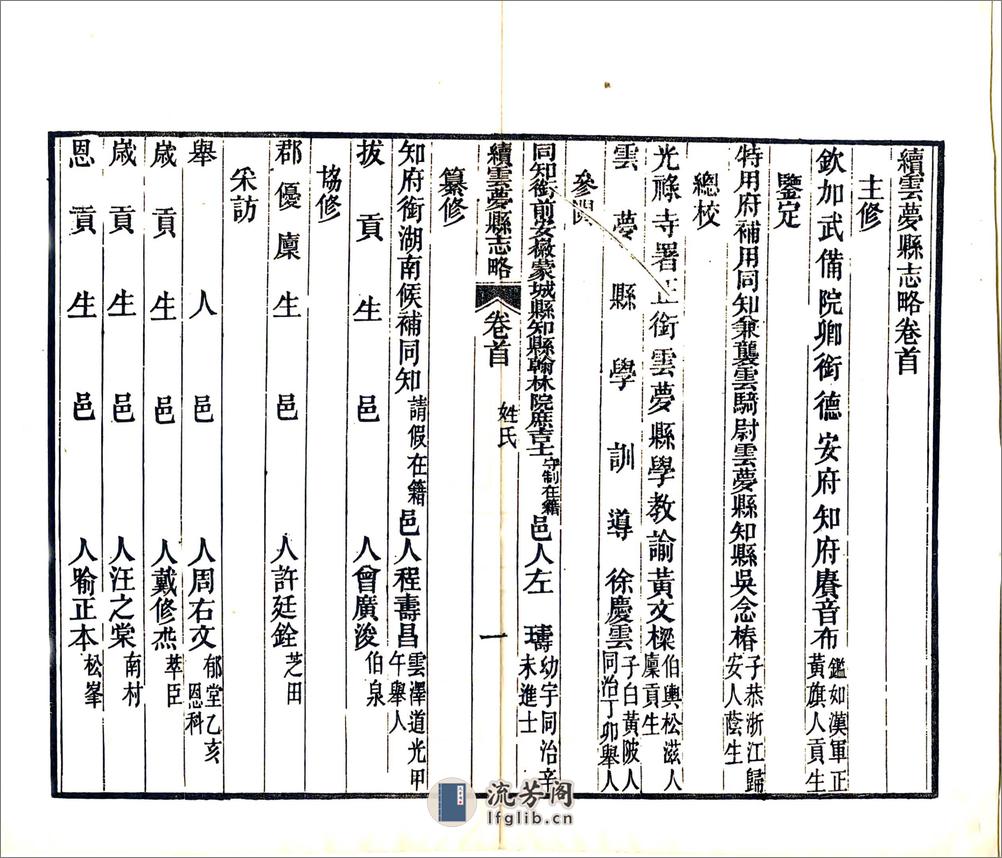 續雲夢縣志略卷首
主修
欽加武備院卿銜德安府知府賡音布鑑如漢軍正黃旗人貢生
鑒定
特用府補用同知兼襲雲騎尉雲夢縣知縣吳念椿子恭浙江歸安人蔭生
總校
光祿寺署正銜雲夢縣學教諭黃文樑伯輿松滋人廩貢生
雲夢縣學訓導徐慶雲子白黃陂人同治丁卯舉人
參閱
同知銜前安徽蒙城縣知縣翰林院庶吉士守制在籍邑人左璹幼宇同治辛未進士
續雲夢縣志略 卷首 姓氏 一
纂修
知府銜湖南候補同知請假在籍邑人程壽昌雲澤道光甲午舉人
拔貢生邑人曾廣浚伯泉
協修
郡優廩生邑人許廷銓芝田
采訪
舉人邑人周右文郁堂乙亥恩科
歲貢生邑人戴修杰萃臣
歲貢生邑人汪之棠南村
恩貢生邑人喻正本松峯
流芳阁
lfglib.cn